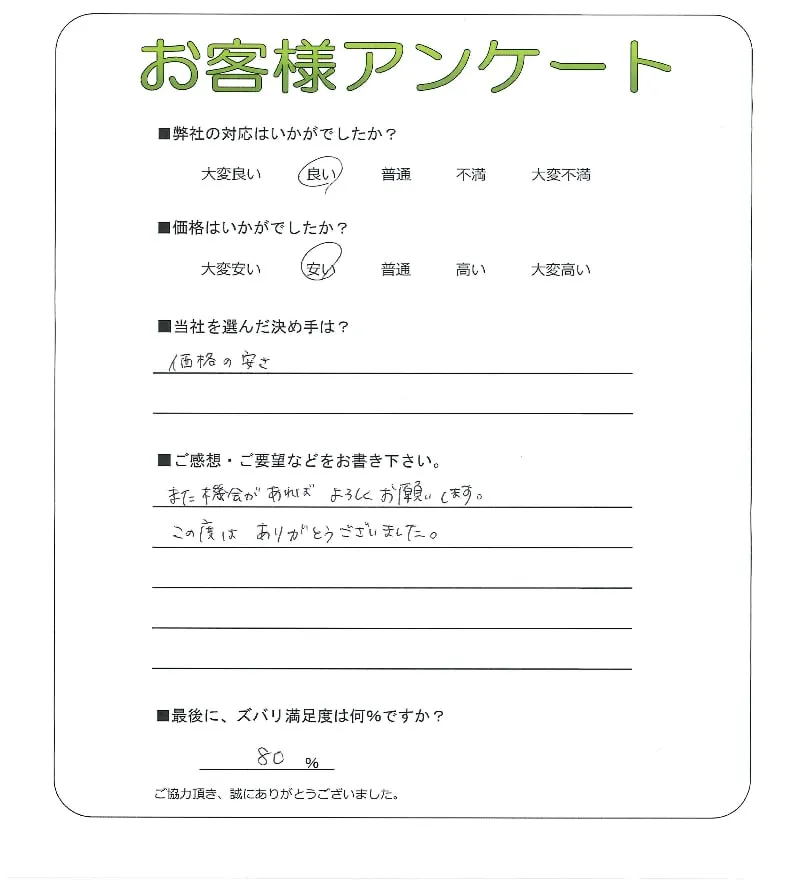 お客様アンケート
■弊社の対応はいかがでしたか？
大変良い 良い 普通 不満 大変不満
■価格はいかがでしたか？
大変安い 安い 普通 高い 大変高い
■当社を選んだ決め手は？
価格の安さ
■ご感想・ご要望などをお書き下さい。
また機会があれば よろしくお願いします。
この度は ありがとうございました。
■最後に、ズバリ満足度は何％ですか？
80 ％
ご協力頂き、誠にありがとうございました。